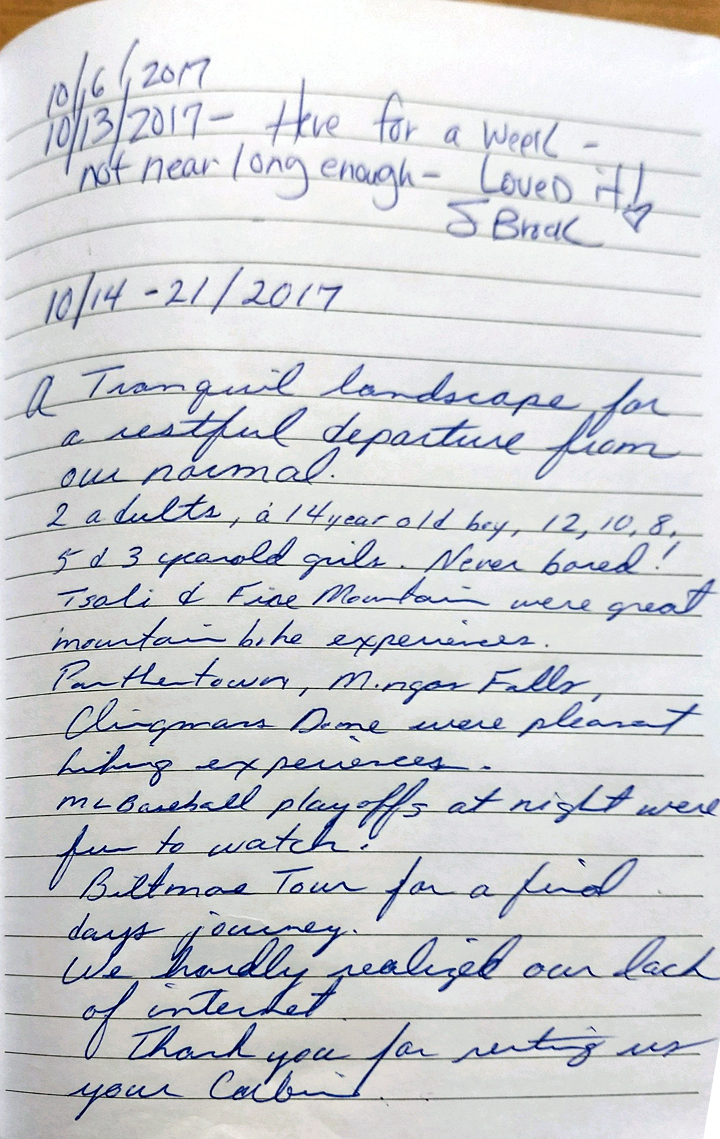 10/6/2017
10/13/2017 - Here for a week -
not near long enough - Loved it!
J Brock
10/14 - 21/2017
A Tranquil landscape for
a restful departure from
our normal.
2 adults, a 14 year old boy, 12, 10, 8,
5 & 3 year old girls. Never bored!
Tsali & Fire Mountain were great
mountain bike experiences.
Panthertown, Mingo Falls,
Clingmans Dome were pleasant
hiking experiences.
MLBaseball playoffs at night were
fun to watch!
Biltmore Tour for a final
days journey.
We hardly realized our lack
of internet.
Thank you for renting us
your Cabin.